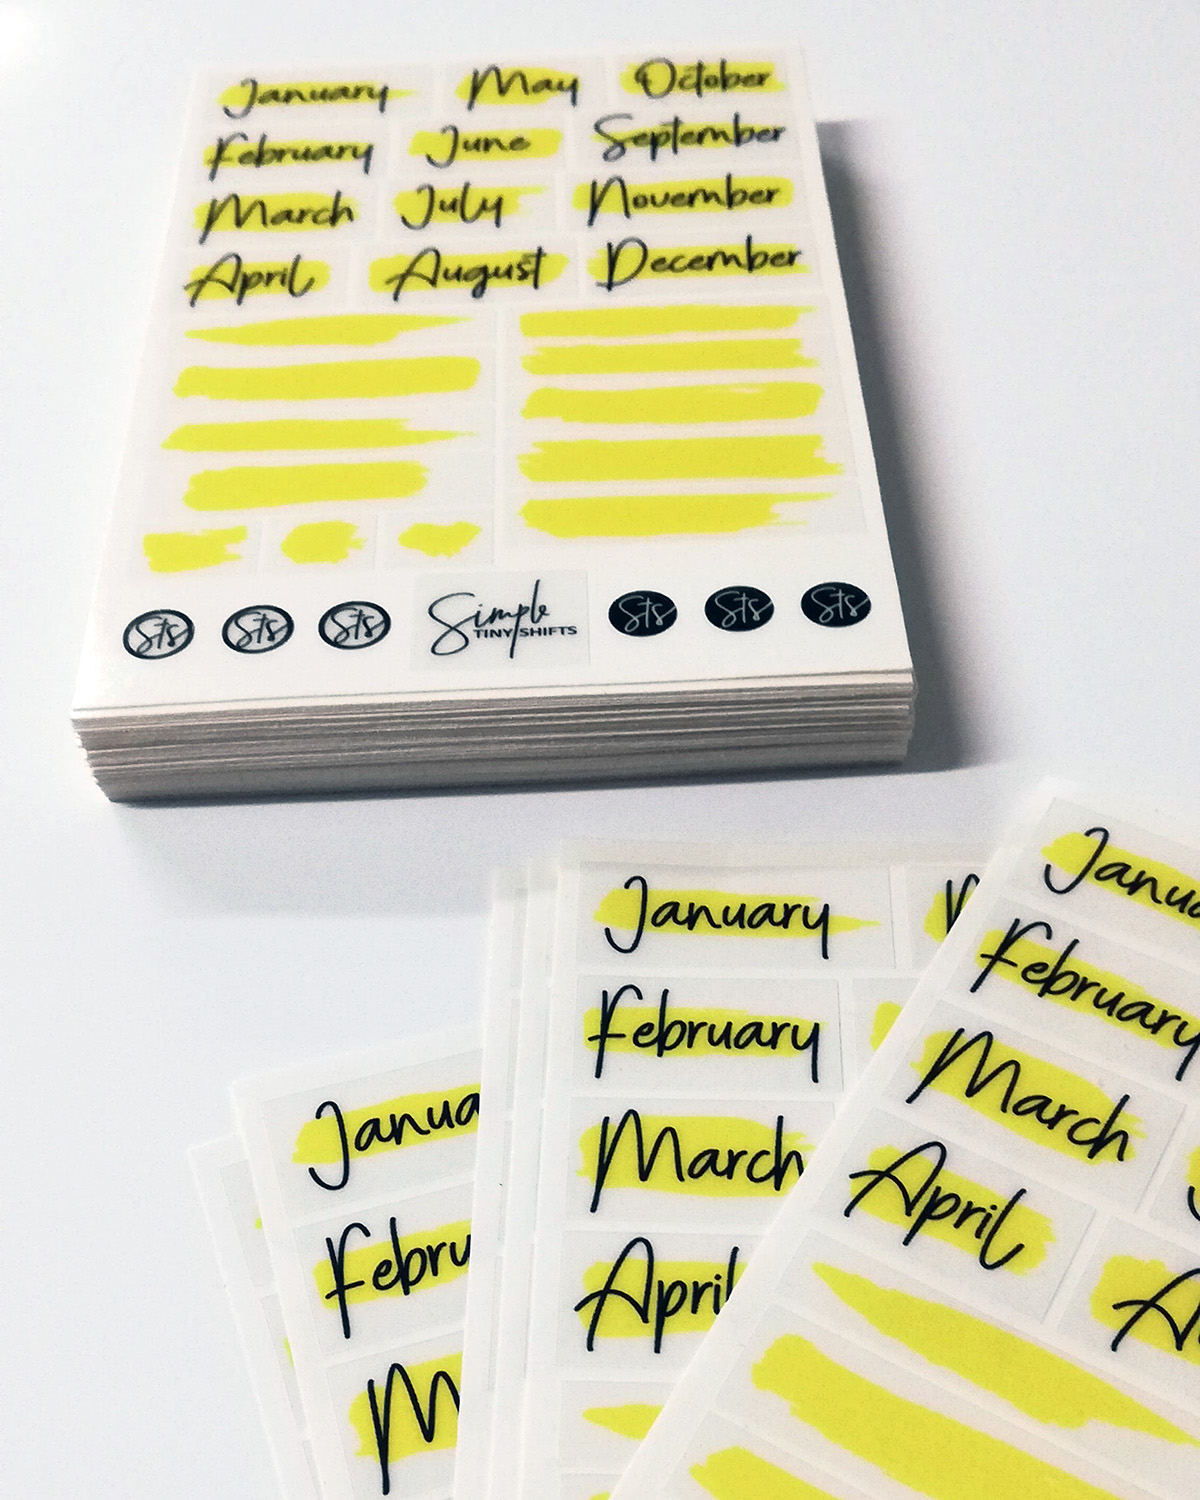 January May October
February June September
March July November
April August December
Sts Sts Sts Simple Sts Sts Sts
TINY SHIFTS
January
February
March
April
January
February
March
April